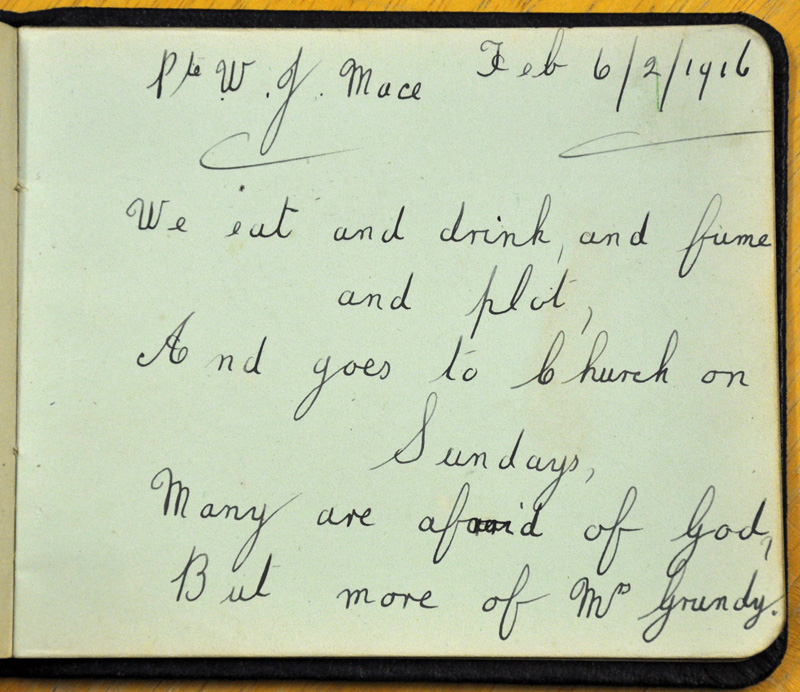 Pte W. J. Mace Feb 6/2/1916
We eat and drink, and fume
and plot,
And goes to Church on
Sundays,
Many are afraid of God,
But more of Mrs Grundy.